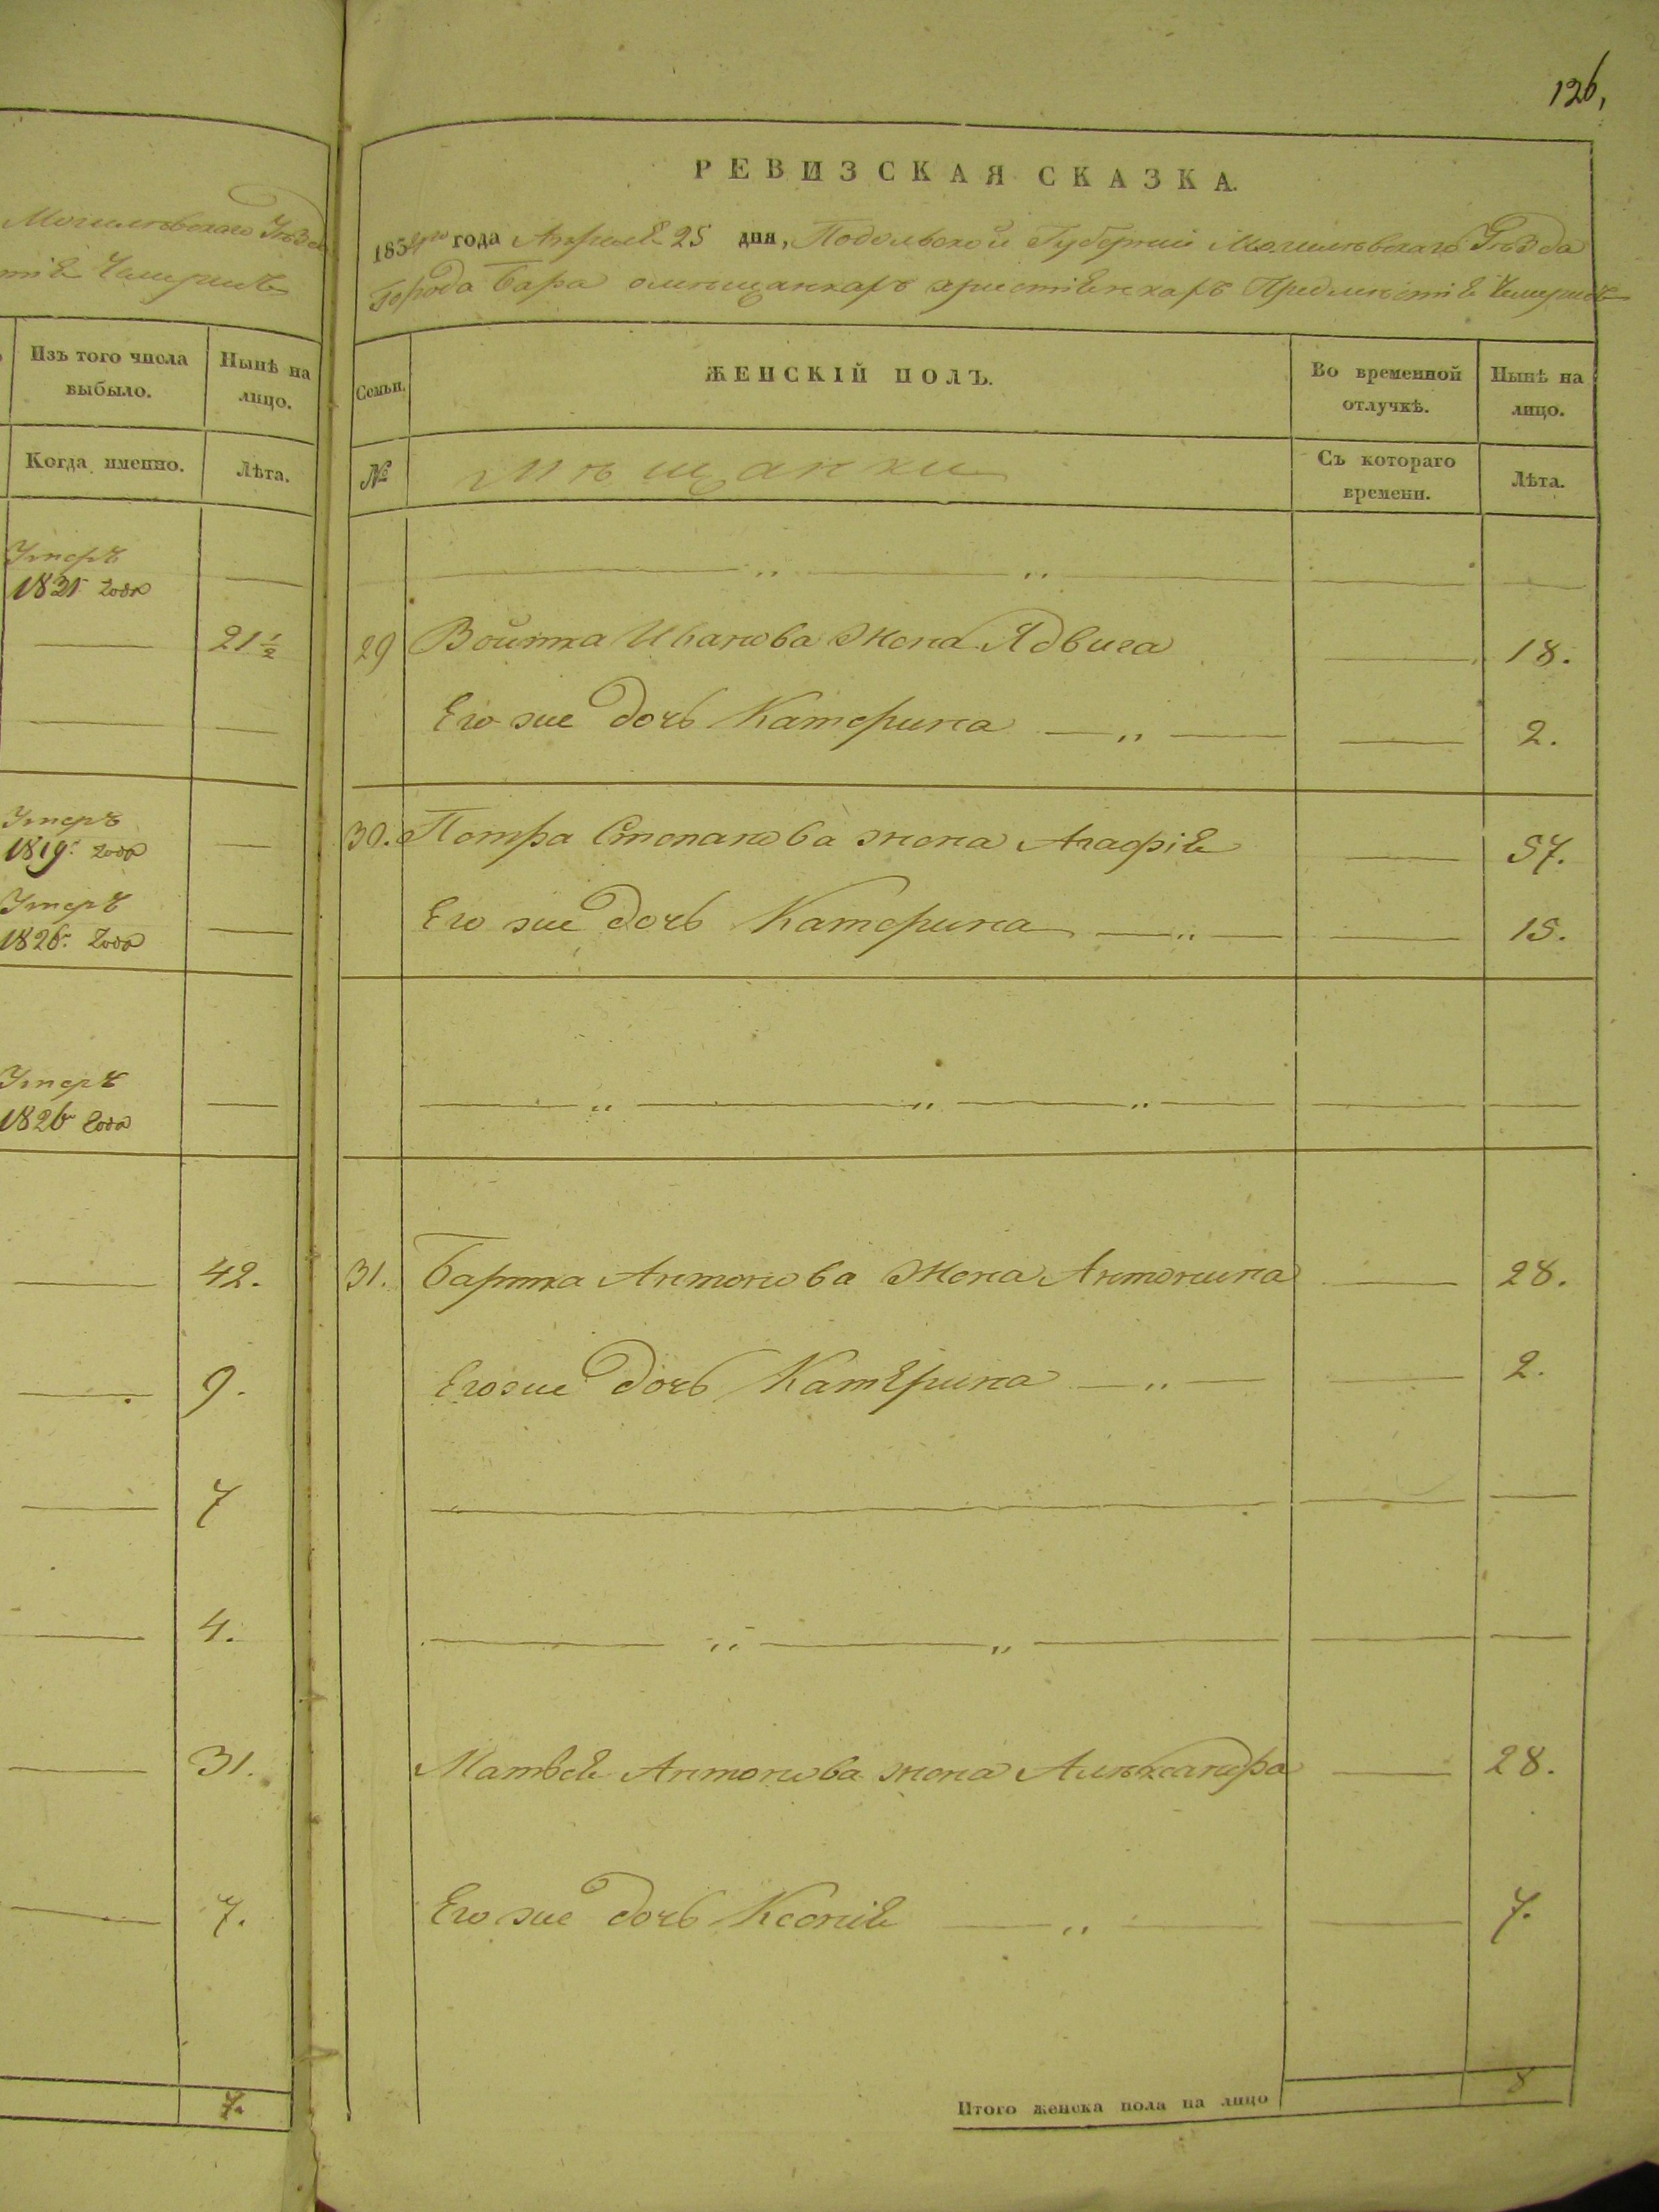 126,
Могилевскаго Уѣзда
Изъ того числа выбыло.
Нынѣ на лицо.
Когда именно.
Лѣта.
Умеръ
1831 года
21 1/2
Умеръ
1819 года
Умеръ
1826 года
Умеръ
1826 года
42.
9.
7
4.
31.
7.
7.
РЕВИЗСКАЯ СКАЗКА.
года Апреля 25 дня, Подольской Губернии Могилевскаго Уѣзда
Города Бара омѣщанкахъ христіянкахъ Предмѣстія
Семьи.
ЖЕНСКІЙ ПОЛЪ.
Во временной отлучкѣ.
Нынѣ на лицо.
№
Мѣщанки
Съ котораго времени.
Лѣта.
29 Войтка Иванова Жена Ядвига 18.
Его же дочь Катерина 2.
30. Петра Степанова жена Агафія 57.
Его же дочь Катерина 15.
31. Бартка Антонова Жена Антонина 28.
Егоже дочь Катерина 2.
Матвея Антонова жена Александра 28.
Его же дочь Ксенія 7.
Итого женска пола на лицо 8